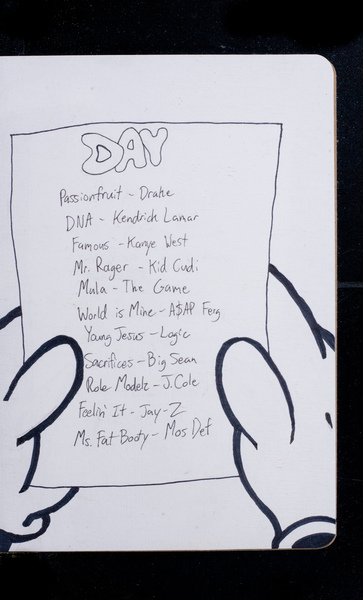 DAY
Passionfruit - Drake
DNA - Kendrick Lamar
Famous - Kanye West
Mr. Rager - Kid Cudi
Mula - The Game
World is Mine - A$AP Ferg
Young Jesus - Logic
Sacrifices - Big Sean
Role Modelz - J. Cole
Feelin' It - Jay-Z
Ms. Fat Booty - Mos Def